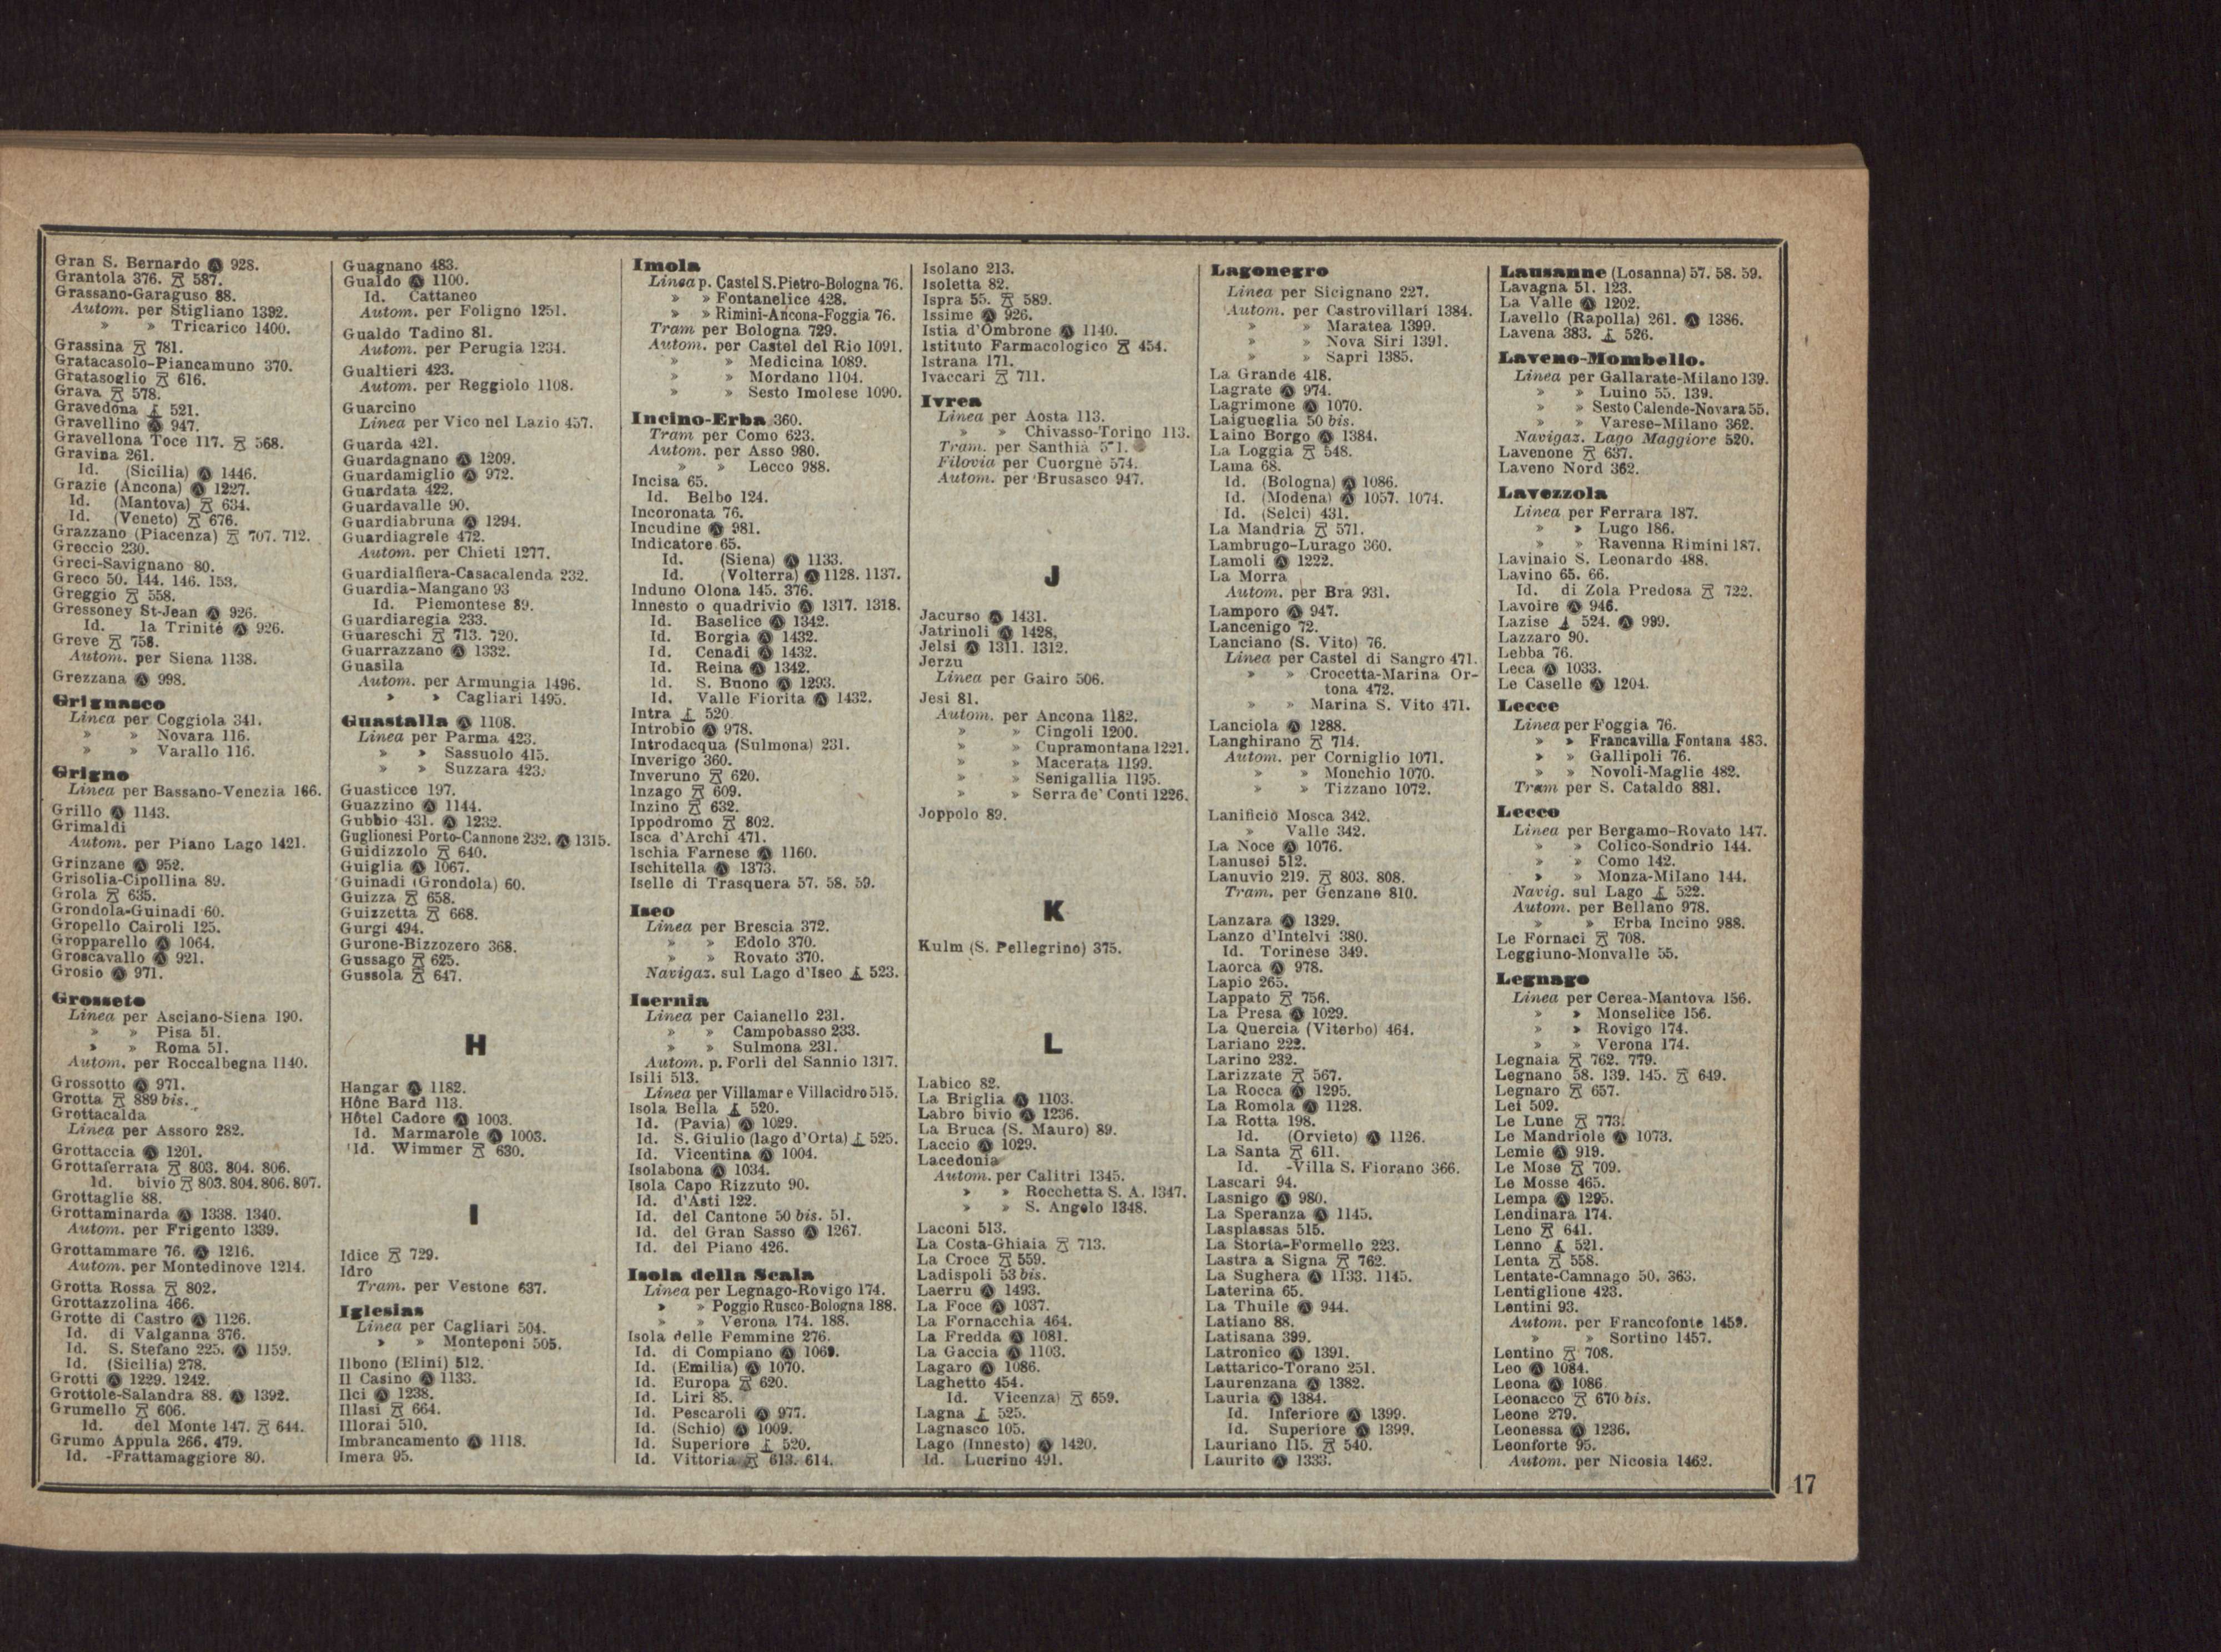 Gran S. Bernardo Ⓐ 928.
Grantola 376. 587.
Grassano-Garaguso 88.
Autom. per Stigliano 1392.
» » Tricarico 1400.
Grassina 781.
Gratacasolo-Piancamuno 370.
Gratasoglio 616.
Grava 578.
Gravedona 521.
Gravellino Ⓐ 947.
Gravellona Toce 117. 568.
Gravina 261.
Id. (Sicilia) Ⓐ 1446.
Grazie (Ancona) Ⓐ 1227.
Id. (Mantova) 634.
Id. (Veneto) 676.
Grazzano (Piacenza) 707. 712.
Greccio 230.
Greci-Savignano 80.
Greco 50. 144. 146. 153.
Greggio 558.
Gressoney St-Jean Ⓐ 926.
Id. la Trinité Ⓐ 926.
Greve 758.
Autom. per Siena 1138.
Grezzana Ⓐ 998.
Grignasco
Linea per Coggiola 341.
» » Novara 116.
» » Varallo 116.
Grigno
Linea per Bassano-Venezia 166.
Grillo Ⓐ 1143.
Grimaldi
Autom. per Piano Lago 1421.
Grinzane Ⓐ 952.
Grisolia-Cipollina 89.
Grola 635.
Grondola-Guinadi 60.
Gropello Cairoli 125.
Gropparello Ⓐ 1064.
Groscavallo Ⓐ 921.
Grosio Ⓐ 971.
Grosseto
Linea per Asciano-Siena 190.
» » Pisa 51.
» » Roma 51.
Autom. per Roccalbegna 1140.
Grossotto Ⓐ 971.
Grotta 889 bis.
Grottacalda
Linea per Assoro 282.
Grottaccia Ⓐ 1201.
Grottaferrata 803. 804. 806.
Id. bivio 803. 804. 806. 807.
Grottaglie 88.
Grottaminarda Ⓐ 1338. 1340.
Autom. per Frigento 1339.
Grottammare 76. Ⓐ 1216.
Autom. per Montedinove 1214.
Grotta Rossa 802.
Grottazzolina 466.
Grotte di Castro Ⓐ 1126.
Id. di Valganna 376.
Id. S. Stefano 225. Ⓐ 1159.
Id. (Sicilia) 278.
Grotti Ⓐ 1229. 1242.
Grottole-Salandra 88. Ⓐ 1392.
Grumello 606.
Id. del Monte 147. 644.
Grumo Appula 266. 479.
Id. -Frattamaggiore 80.
Guagnano 483.
Gualdo Ⓐ 1100.
Id. Cattaneo
Autom. per Foligno 1251.
Gualdo Tadino 81.
Autom. per Perugia 1234.
Gualtieri 423.
Autom. per Reggiolo 1108.
Guarcino
Linea per Vico nel Lazio 457.
Guarda 421.
Guardagnano Ⓐ 1209.
Guardamiglio Ⓐ 972.
Guardata 422.
Guardavalle 90.
Guardiabruna Ⓐ 1294.
Guardiagrele 472.
Autom. per Chieti 1277.
Guardialfiera-Casacalenda 232.
Guardia-Mangano 93
Id. Piemontese 89.
Guardiaregia 233.
Guareschi 713. 720.
Guarrazzano Ⓐ 1332.
Guasila
Autom. per Armungia 1496.
» » Cagliari 1495.
Guastalla Ⓐ 1108.
Linea per Parma 423.
» » Sassuolo 415.
» » Suzzara 423.
Guasticce 197.
Guazzino Ⓐ 1144.
Gubbio 431. Ⓐ 1232.
Guglionesi Porto-Cannone 232. Ⓐ 1315.
Guidizzolo 640.
Guiglia Ⓐ 1067.
Guinadi (Grondola) 60.
Guizza 658.
Guizzetta 668.
Gurgi 494.
Gurone-Bizzozero 368.
Gussago 625.
Gussola 647.
H
Hangar Ⓐ 1182.
Hône Bard 113.
Hôtel Cadore Ⓐ 1003.
Id. Marmarole Ⓐ 1003.
Id. Wimmer 630.
I
Idice 729.
Idro
Tram. per Vestone 637.
Iglesias
Linea per Cagliari 504.
» » Monteponi 505.
Ilbono (Elini) 512.
Il Casino Ⓐ 1133.
Ilci Ⓐ 1238.
Illasi 664.
Illorai 510.
Imbrancamento Ⓐ 1118.
Imera 95.
Imola
Linea p. Castel S. Pietro-Bologna 76.
» » Fontanelice 428.
» » Rimini-Ancona-Foggia 76.
Tram per Bologna 729.
Autom. per Castel del Rio 1091.
» » Medicina 1089.
» » Mordano 1104.
» » Sesto Imolese 1090.
Incino-Erba 360.
Tram per Como 623.
Autom. per Asso 980.
» » Lecco 988.
Incisa 65.
Id. Belbo 124.
Incoronata 76.
Incudine Ⓐ 981.
Indicatore 65.
Id. (Siena) Ⓐ 1133.
Id. (Volterra) Ⓐ 1128. 1137.
Induno Olona 145. 376.
Innesto o quadrivio Ⓐ 1317. 1318.
Id. Baselice Ⓐ 1342.
Id. Borgia Ⓐ 1432.
Id. Cenadi Ⓐ 1432.
Id. Reina Ⓐ 1342.
Id. S. Buono Ⓐ 1293.
Id. Valle Fiorita Ⓐ 1432.
Intra 520.
Introbio Ⓐ 978.
Introdacqua (Sulmona) 231.
Inverigo 360.
Inveruno 620.
Inzago 609.
Inzino 632.
Ippodromo 802.
Isca d'Archi 471.
Ischia Farnese Ⓐ 1160.
Ischitella Ⓐ 1373.
Iselle di Trasquera 57. 58. 59.
Iseo
Linea per Brescia 372.
» » Edolo 370.
» » Rovato 370.
Navigaz. sul Lago d'Iseo 523.
Isernia
Linea per Caianello 231.
» » Campobasso 233.
» » Sulmona 231.
Autom. p. Forlì del Sannio 1317.
Isili 513.
Linea per Villamar e Villacidro 515.
Isola Bella 520.
Id. (Pavia) Ⓐ 1029.
Id. S. Giulio (lago d'Orta) 525.
Id. Vicentina Ⓐ 1004.
Isolabona Ⓐ 1034.
Isola Capo Rizzuto 90.
Id. d'Asti 122.
Id. del Cantone 50 bis. 51.
Id. del Gran Sasso Ⓐ 1267.
Id. del Piano 426.
Isola della Scala
Linea per Legnago-Rovigo 174.
» » Poggio Rusco-Bologna 188.
» » Verona 174. 188.
Isola delle Femmine 276.
Id. di Compiano Ⓐ 1069.
Id. (Emilia) Ⓐ 1070.
Id. Europa 620.
Id. Liri 85.
Id. Pescaroli Ⓐ 977.
Id. (Schio) Ⓐ 1009.
Id. Superiore 520.
Id. Vittoria 613. 614.
Isolano 213.
Isoletta 82.
Ispra 55. 589.
Issime Ⓐ 926.
Istia d'Ombrone Ⓐ 1140.
Istituto Farmacologico 454.
Istrana 171.
Ivaccari 711.
Ivrea
Linea per Aosta 113.
» » Chivasso-Torino 113.
Tram. per Santhià
Filovia per Cuorgnè 574.
Autom. per Brusasco 947.
J
Jacurso Ⓐ 1431.
Jatrinoli Ⓐ 1428.
Jelsi Ⓐ 1311. 1312.
Jerzu
Linea per Gairo 506.
Jesi 81.
Autom. per Ancona 1182.
» » Cingoli 1200.
» » Cupramontana 1221.
» » Macerata 1199.
» » Senigallia 1195.
» » Serra de' Conti 1226.
Joppolo 89.
K
Kulm (S. Pellegrino) 375.
L
Labico 82.
La Briglia Ⓐ 1103.
Labro bivio Ⓐ 1236.
La Bruca (S. Mauro) 89.
Laccio Ⓐ 1029.
Lacedonia
Autom. per Calitri 1345.
» » Rocchetta S. A. 1347.
» » S. Angelo 1348.
Laconi 513.
La Costa-Ghiaia 713.
La Croce 559.
Ladispoli 53 bis.
Laerru Ⓐ 1493.
La Foce Ⓐ 1037.
La Fornacchia 464.
La Fredda Ⓐ 1081.
La Gaccia Ⓐ 1103.
Lagaro Ⓐ 1086.
Laghetto 454.
Id. Vicenza) 659.
Lagna 525.
Lagnasco 105.
Lago (Innesto) Ⓐ 1420.
Id. Lucrino 491.
Lagonegro
Linea per Sicignano 227.
Autom. per Castrovillari 1384.
» » Maratea 1399.
» » Nova Siri 1391.
» » Sapri 1385.
La Grande 418.
Lagrate Ⓐ 974.
Lagrimone Ⓐ 1070.
Laigueglia 50 bis.
Laino Borgo Ⓐ 1384.
La Loggia 548.
Lama 68.
Id. (Bologna) Ⓐ 1086.
Id. (Modena) Ⓐ 1057. 1074.
Id. (Selci) 431.
La Mandria 571.
Lambrugo-Lurago 360.
Lamoli Ⓐ 1222.
La Morra
Autom. per Bra 931.
Lamporo Ⓐ 947.
Lancenigo 72.
Lanciano (S. Vito) 76.
Linea per Castel di Sangro 471.
» » Crocetta-Marina Or-
tona 472.
» » Marina S. Vito 471.
Lanciola Ⓐ 1288.
Langhirano 714.
Autom. per Corniglio 1071.
» » Monchio 1070.
» » Tizzano 1072.
Lanificio Mosca 342.
» Valle 342.
La Noce Ⓐ 1076.
Lanusei 512.
Lanuvio 219. 803. 808.
Tram. per Genzano 810.
Lanzara Ⓐ 1329.
Lanzo d'Intelvi 380.
Id. Torinese 349.
Laorca Ⓐ 978.
Lapio 265.
Lappato 756.
La Presa Ⓐ 1029.
La Quercia (Viterbo) 464.
Lariano 222.
Larino 232.
Larizzate 567.
La Rocca Ⓐ 1295.
La Romola Ⓐ 1128.
La Rotta 198.
Id. (Orvieto) Ⓐ 1126.
La Santa 611.
Id. -Villa S. Fiorano 366.
Lascari 94.
Lasnigo Ⓐ 980.
La Speranza Ⓐ 1145.
Lasplassas 515.
La Storta-Formello 223.
Lastra a Signa 762.
La Sughera Ⓐ 1133. 1145.
Laterina 65.
La Thuile Ⓐ 944.
Latiano 88.
Latisana 399.
Latronico Ⓐ 1391.
Lattarico-Torano 251.
Laurenzana Ⓐ 1382.
Lauria Ⓐ 1384.
Id. Inferiore Ⓐ 1399.
Id. Superiore Ⓐ 1399.
Lauriano 115. 540.
Laurito Ⓐ 1333.
Lausanne (Losanna) 57. 58. 59.
Lavagna 51. 123.
La Valle Ⓐ 1202.
Lavello (Rapolla) 261. Ⓐ 1386.
Lavena 383. 526.
Laveno-Mombello.
Linea per Gallarate-Milano 139.
» » Luino 55. 139.
» » Sesto Calende-Novara 55.
» » Varese-Milano 362.
Navigaz. Lago Maggiore 520.
Lavenone 637.
Laveno Nord 362.
Lavezzola
Linea per Ferrara 187.
» » Lugo 186.
» » Ravenna Rimini 187.
Lavinaio S. Leonardo 488.
Lavino 65. 66.
Id. di Zola Predosa 722.
Lavoire Ⓐ 946.
Lazise 524. Ⓐ 999.
Lazzaro 90.
Lebba 76.
Leca Ⓐ 1033.
Le Caselle Ⓐ 1204.
Lecce
Linea per Foggia 76.
» » Francavilla Fontana 483.
» » Gallipoli 76.
» » Novoli-Maglie 482.
Tram per S. Cataldo 881.
Lecco
Linea per Bergamo-Rovato 147.
» » Colico-Sondrio 144.
» » Como 142.
» » Monza-Milano 144.
Navig. sul Lago 522.
Autom. per Bellano 978.
» » Erba Incino 988.
Le Fornaci 708.
Leggiuno-Monvalle 55.
Legnago
Linea per Cerea-Mantova 156.
» » Monselice 156.
» » Rovigo 174.
» » Verona 174.
Legnaia 762. 779.
Legnano 58. 139. 145. 649.
Legnaro 657.
Lei 509.
Le Lune 773.
Le Mandriole Ⓐ 1073.
Lemie Ⓐ 919.
Le Mose 709.
Le Mosse 465.
Lempa Ⓐ 1295.
Lendinara 174.
Leno 641.
Lenno 521.
Lenta 558.
Lentate-Camnago 50. 363.
Lentiglione 423.
Lentini 93.
Autom. per Francofonte 1459.
» » Sortino 1457.
Lentino 708.
Leo Ⓐ 1084.
Leona Ⓐ 1086
Leonacco 670 bis.
Leone 279.
Leonessa Ⓐ 1236.
Leonforte 95.
Autom. per Nicosia 1462.
17